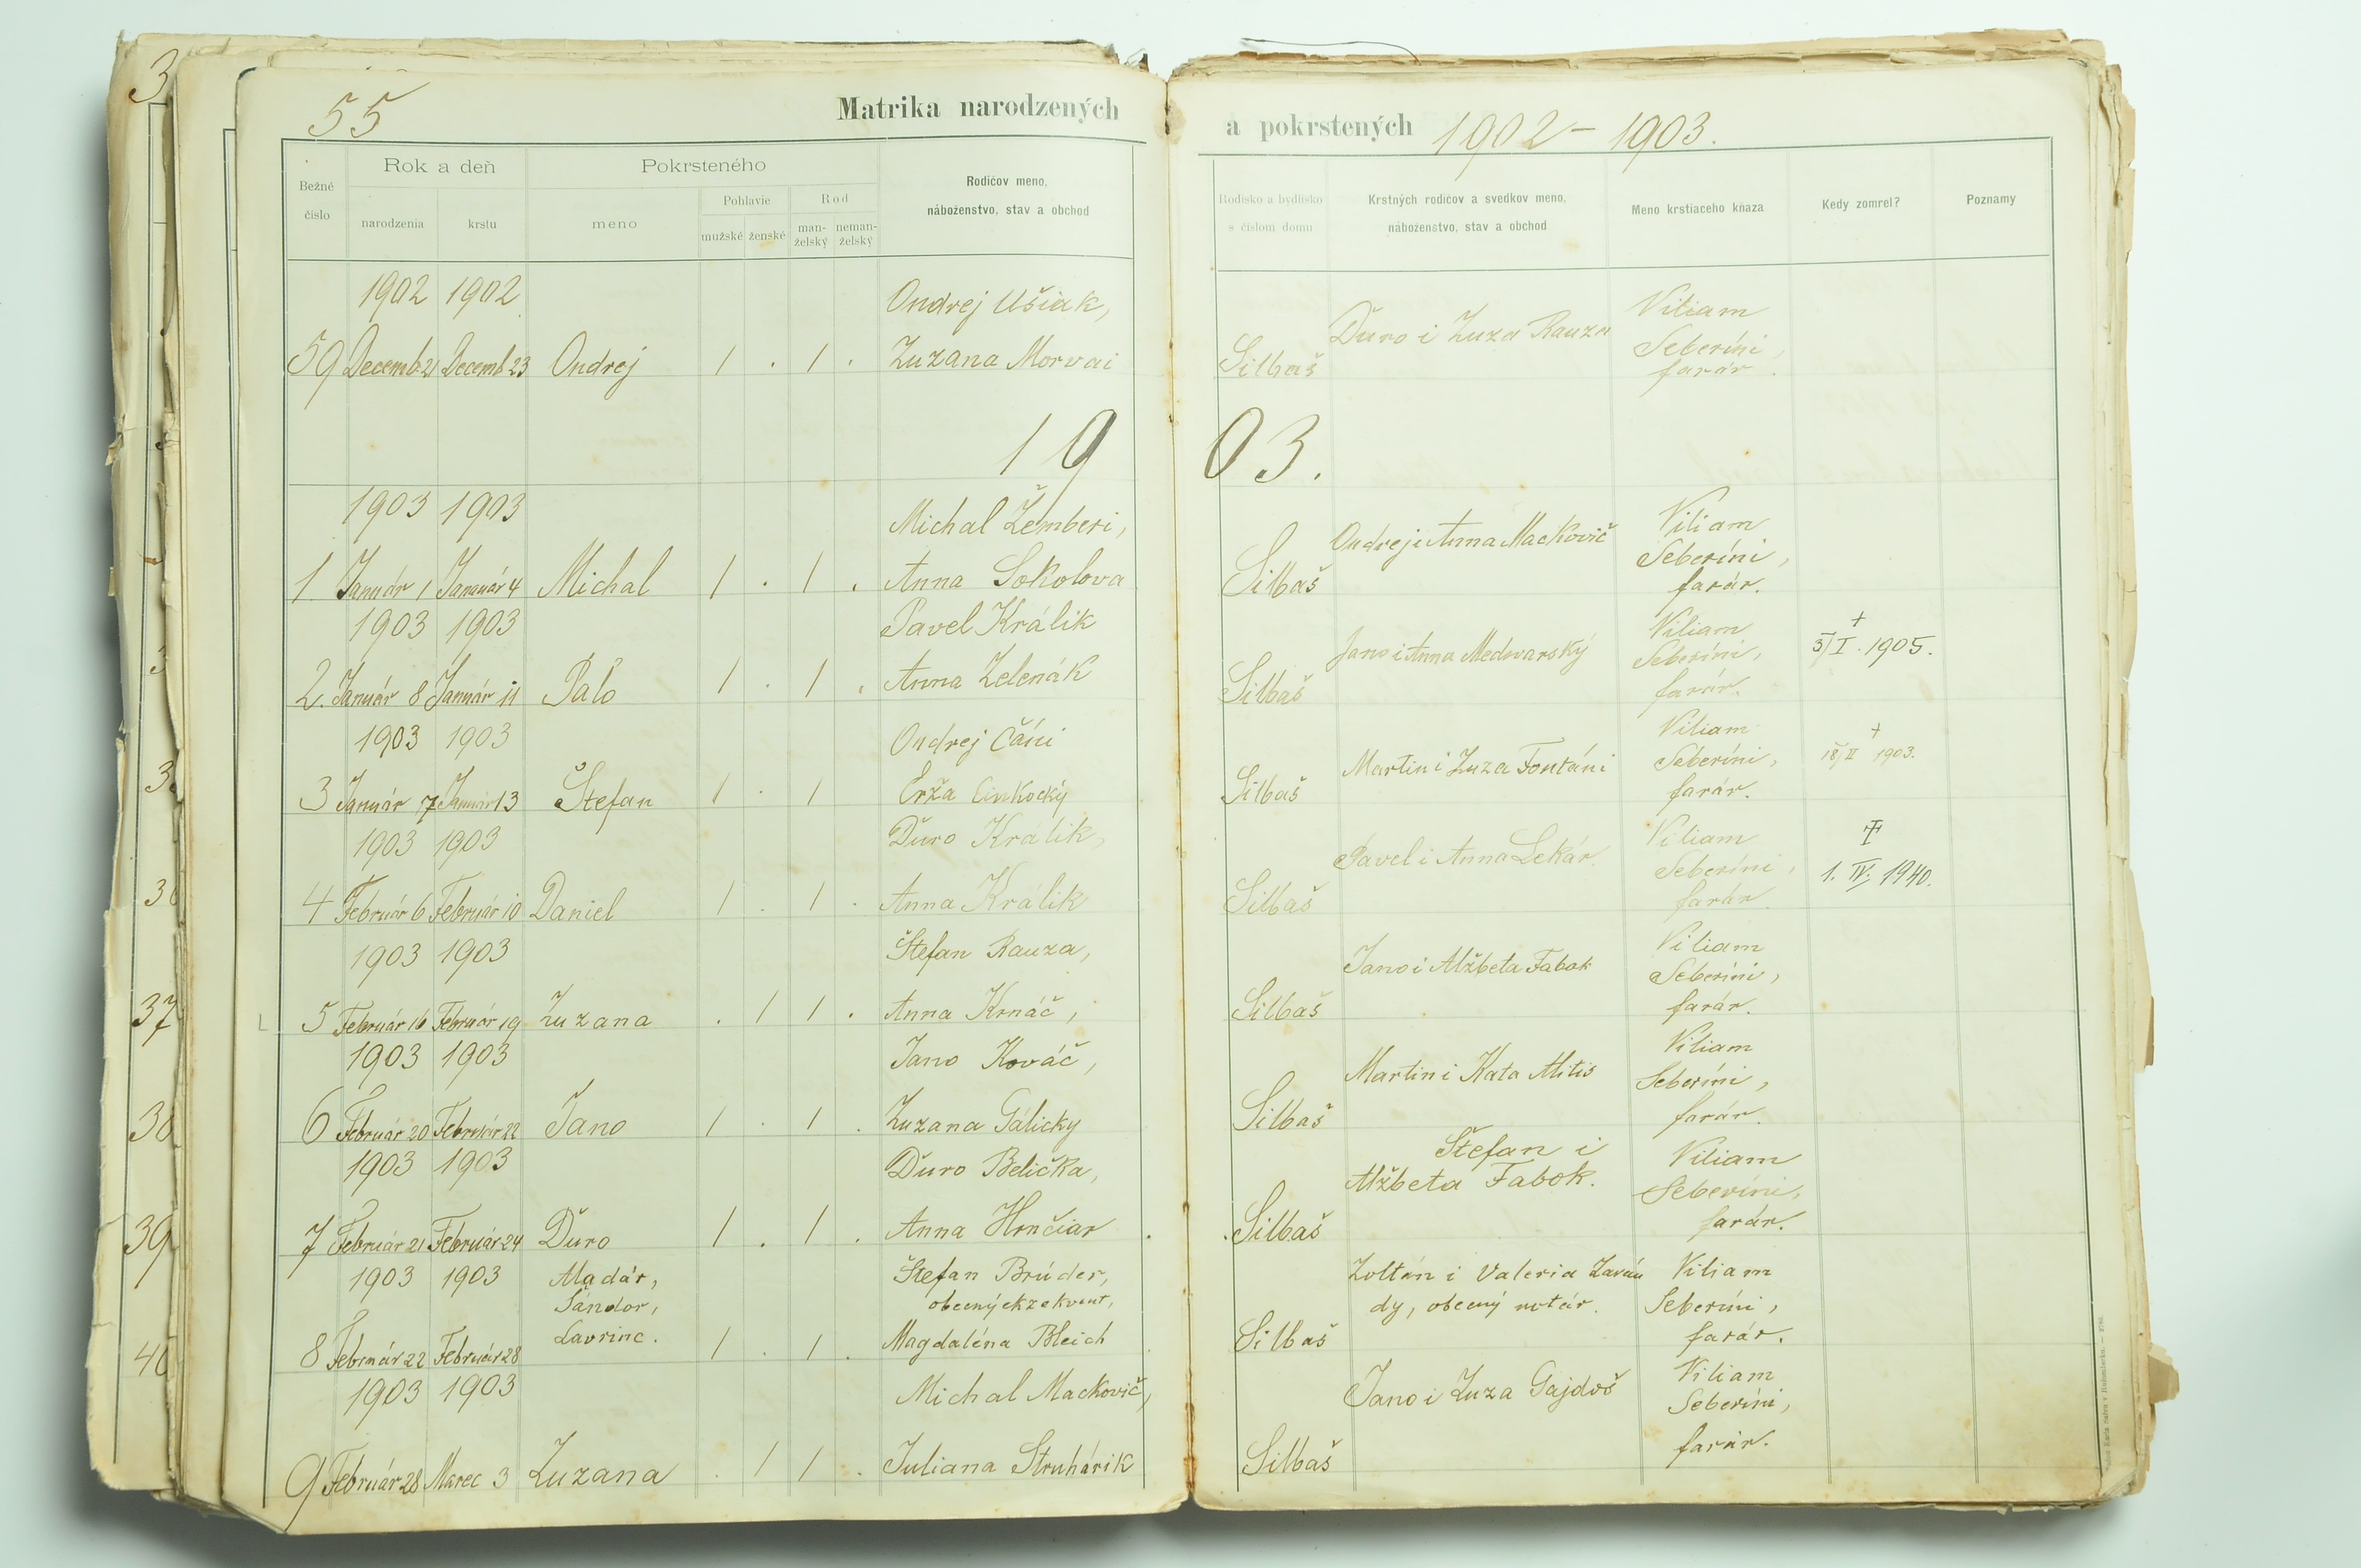 55
Matrika narodzených a pokrstených 1902 – 1903.
Bežné číslo
Rok a deň
narodzenia
krstu
Pokrsteného
meno
Pohlavie
mužské
ženské
Rod
man-želský
neman-želský
Rodičov meno,
náboženstvo, stav a obchod
Rodisko a bydlisko
s číslom domu
Krstných rodičov a svedkov meno,
náboženstvo, stav a obchod
Meno krstiaceho kňaza
Kedy zomrel?
Poznamy
1902 1902 Ondrej Ušiak,
59 Decemb 21 Decemb 23 Ondrej 1 . 1 . Zuzana Morvai
Silbaš Ďuro i Zuza Rauza Viliam
Seberíni,
farár.
1903.
1903 1903 Michal Žemberi,
1 Január 1 Január 4 Michal 1 . 1 . Anna Sokolova
Silbaš Ondrej i Anna Mackovič Viliam
Seberíni,
farár.
1903 1903 Pavel Králik
2. Január 8 Január 11 Palo 1 . 1 . Anna Zelenák
Silbaš Jano i Anna Medovarský Viliam
Seberíni,
farár.
+
3/I. 1905.
1903 1903 Ondrej Čáni
3 Január 7 Január 13 Štefan 1 . 1 Erža Cinkocký
Silbaš Martin i Zuza Fontáni Viliam
Seberíni,
farár.
+
18/II 1903.
1903 1903 Ďuro Králik,
4 Február 6 Február 10 Daniel 1 . 1 . Anna Králik
Silbaš Pavel i Anna Lekár. Viliam
Seberíni,
farár.
1. IV. 1940.
1903 1903 Štefan Rauza,
5 Február 16 Február 19 Zuzana . 1 1 . Anna Krnáč,
Silbaš Jano i Alžbeta Fabok Viliam
Seberíni,
farár.
1903 1903 Jano Kováč,
6 Február 20 Február 22 Jano 1 . 1 . Zuzana Gálicky
Silbaš Martin i Kata Mitis Viliam
Seberíni,
farár.
1903 1903 Ďuro Belička,
7 Február 21 Február 24 Ďuro 1 . 1 . Anna Hrnčiar
Silbaš Štefan i
Alžbeta Fabok. Viliam
Seberíni,
farár.
1903 1903 Aladár, Štefan Brúder,
Sándor, obecný ekzekvent,
8 Február 22 Február 28 Lavrinc. 1 . 1 . Magdaléna Bleich
Silbaš Zoltán i Valeria Zaván
dy, obecný notár. Viliam
Seberíni,
farár.
1903 1903 Michal Mackovič,
9 Február 28 Marec 3 Zuzana . 1 1 . Juliana Struhárik
Silbaš Jano i Zuza Gajdoš Viliam
Seberíni,
farár.
37
38
39
40